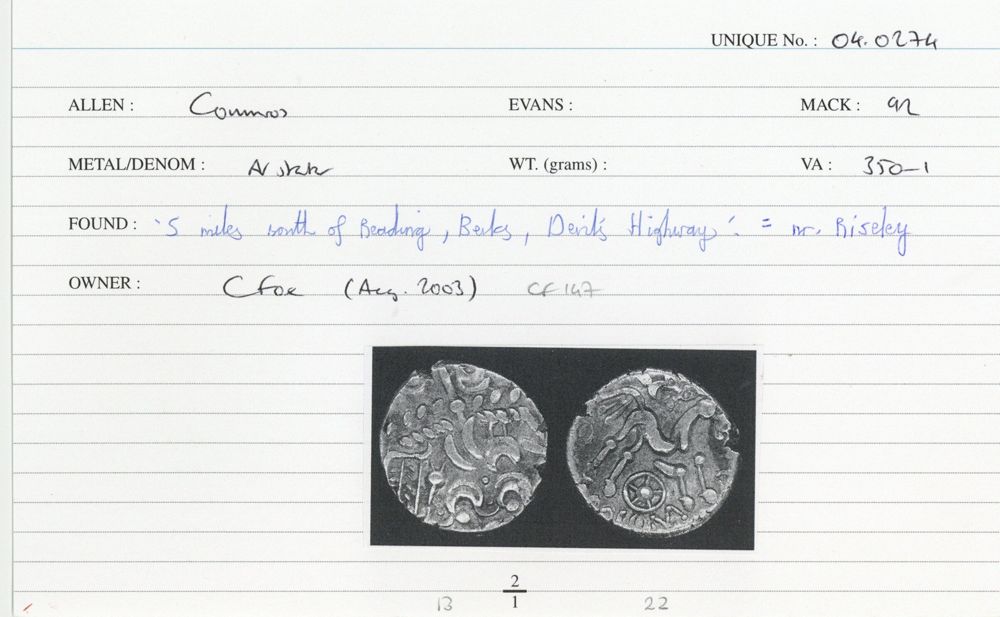 UNIQUE No. : 04.0274
ALLEN : Commios EVANS : MACK : 92
METAL/DENOM : AV stater WT. (grams) : VA : 350-1
FOUND : '5 miles south of Reading, Berks, Devil's Highway'. = nr. Riseley
OWNER : C Foe (Acq. 2003) CF 147
2
13 1 22